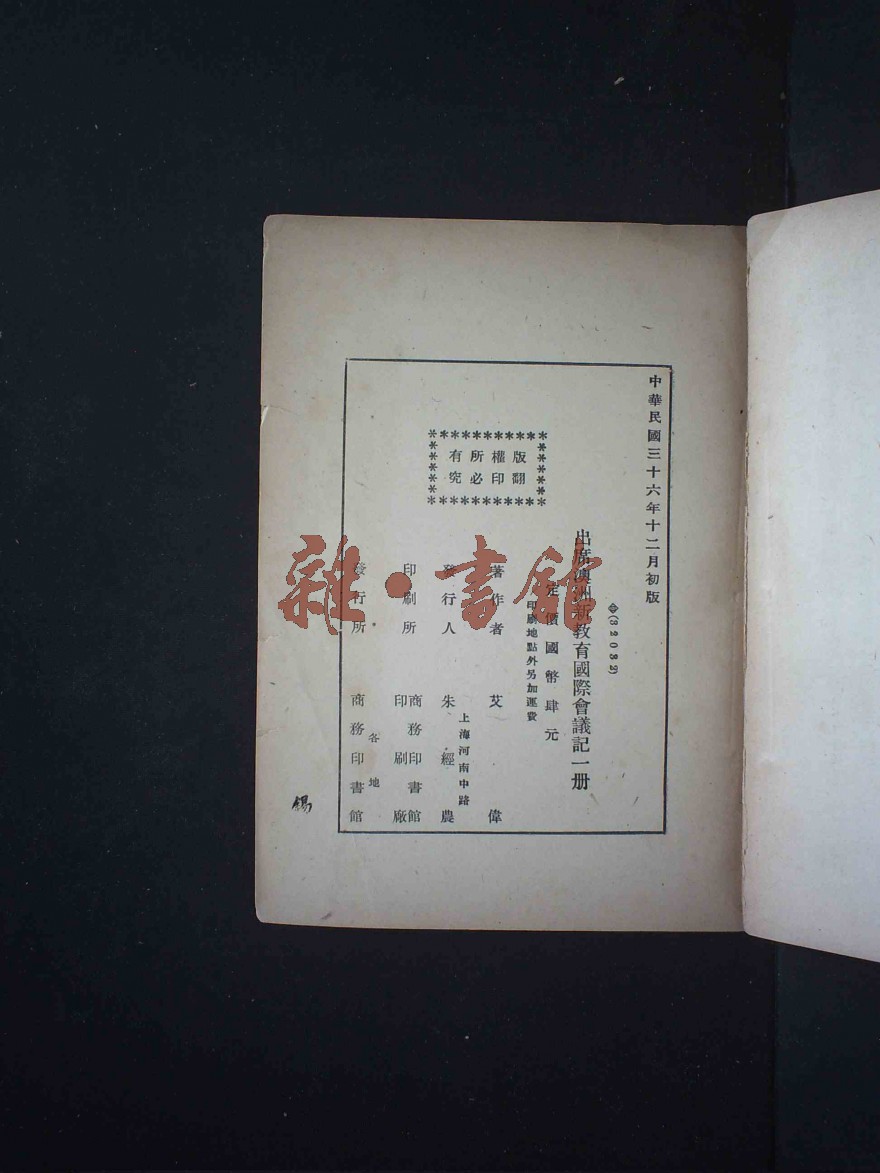 中華民國三十六年十二月初版
(32032)
出席澳洲新教育國際會議記一册
定價國幣肆元
印刷地點外另加運費
版權所有
翻印必究
著作者 艾偉
上海河南中路
發行人 朱經農
印刷所 商務印書館
印刷廠
發行所 各地
商務印書館
雜·書館